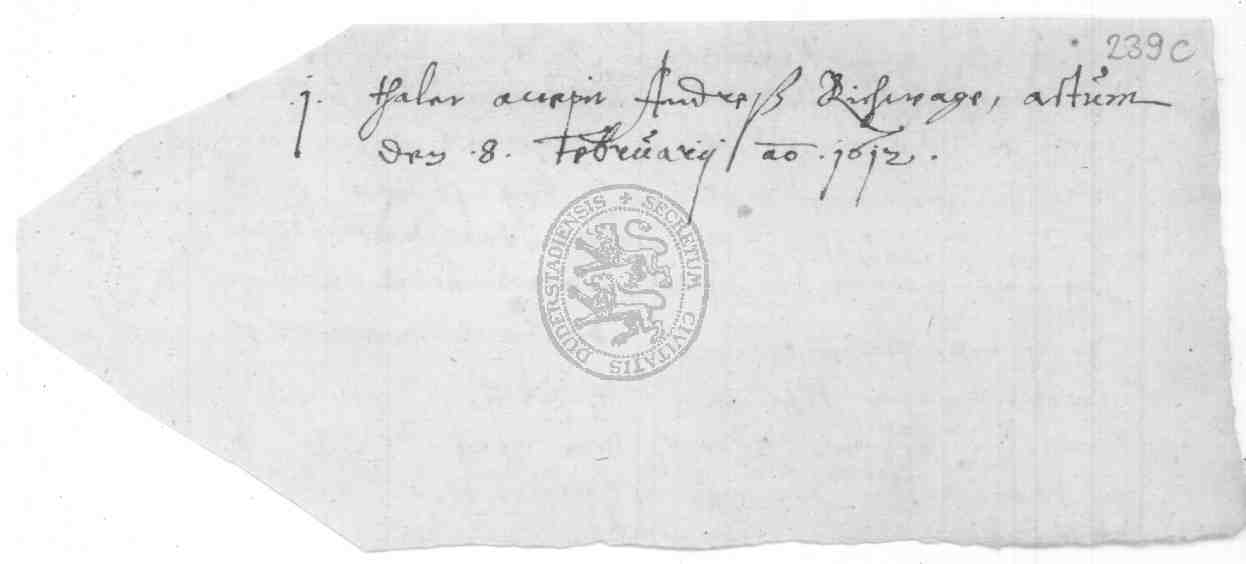 239c
j. thaler accepit Andreß Richwage, actum
den .8. Februarij ao .1612.
SECRETUM CIVITATIS DUDERSTADIENSIS +